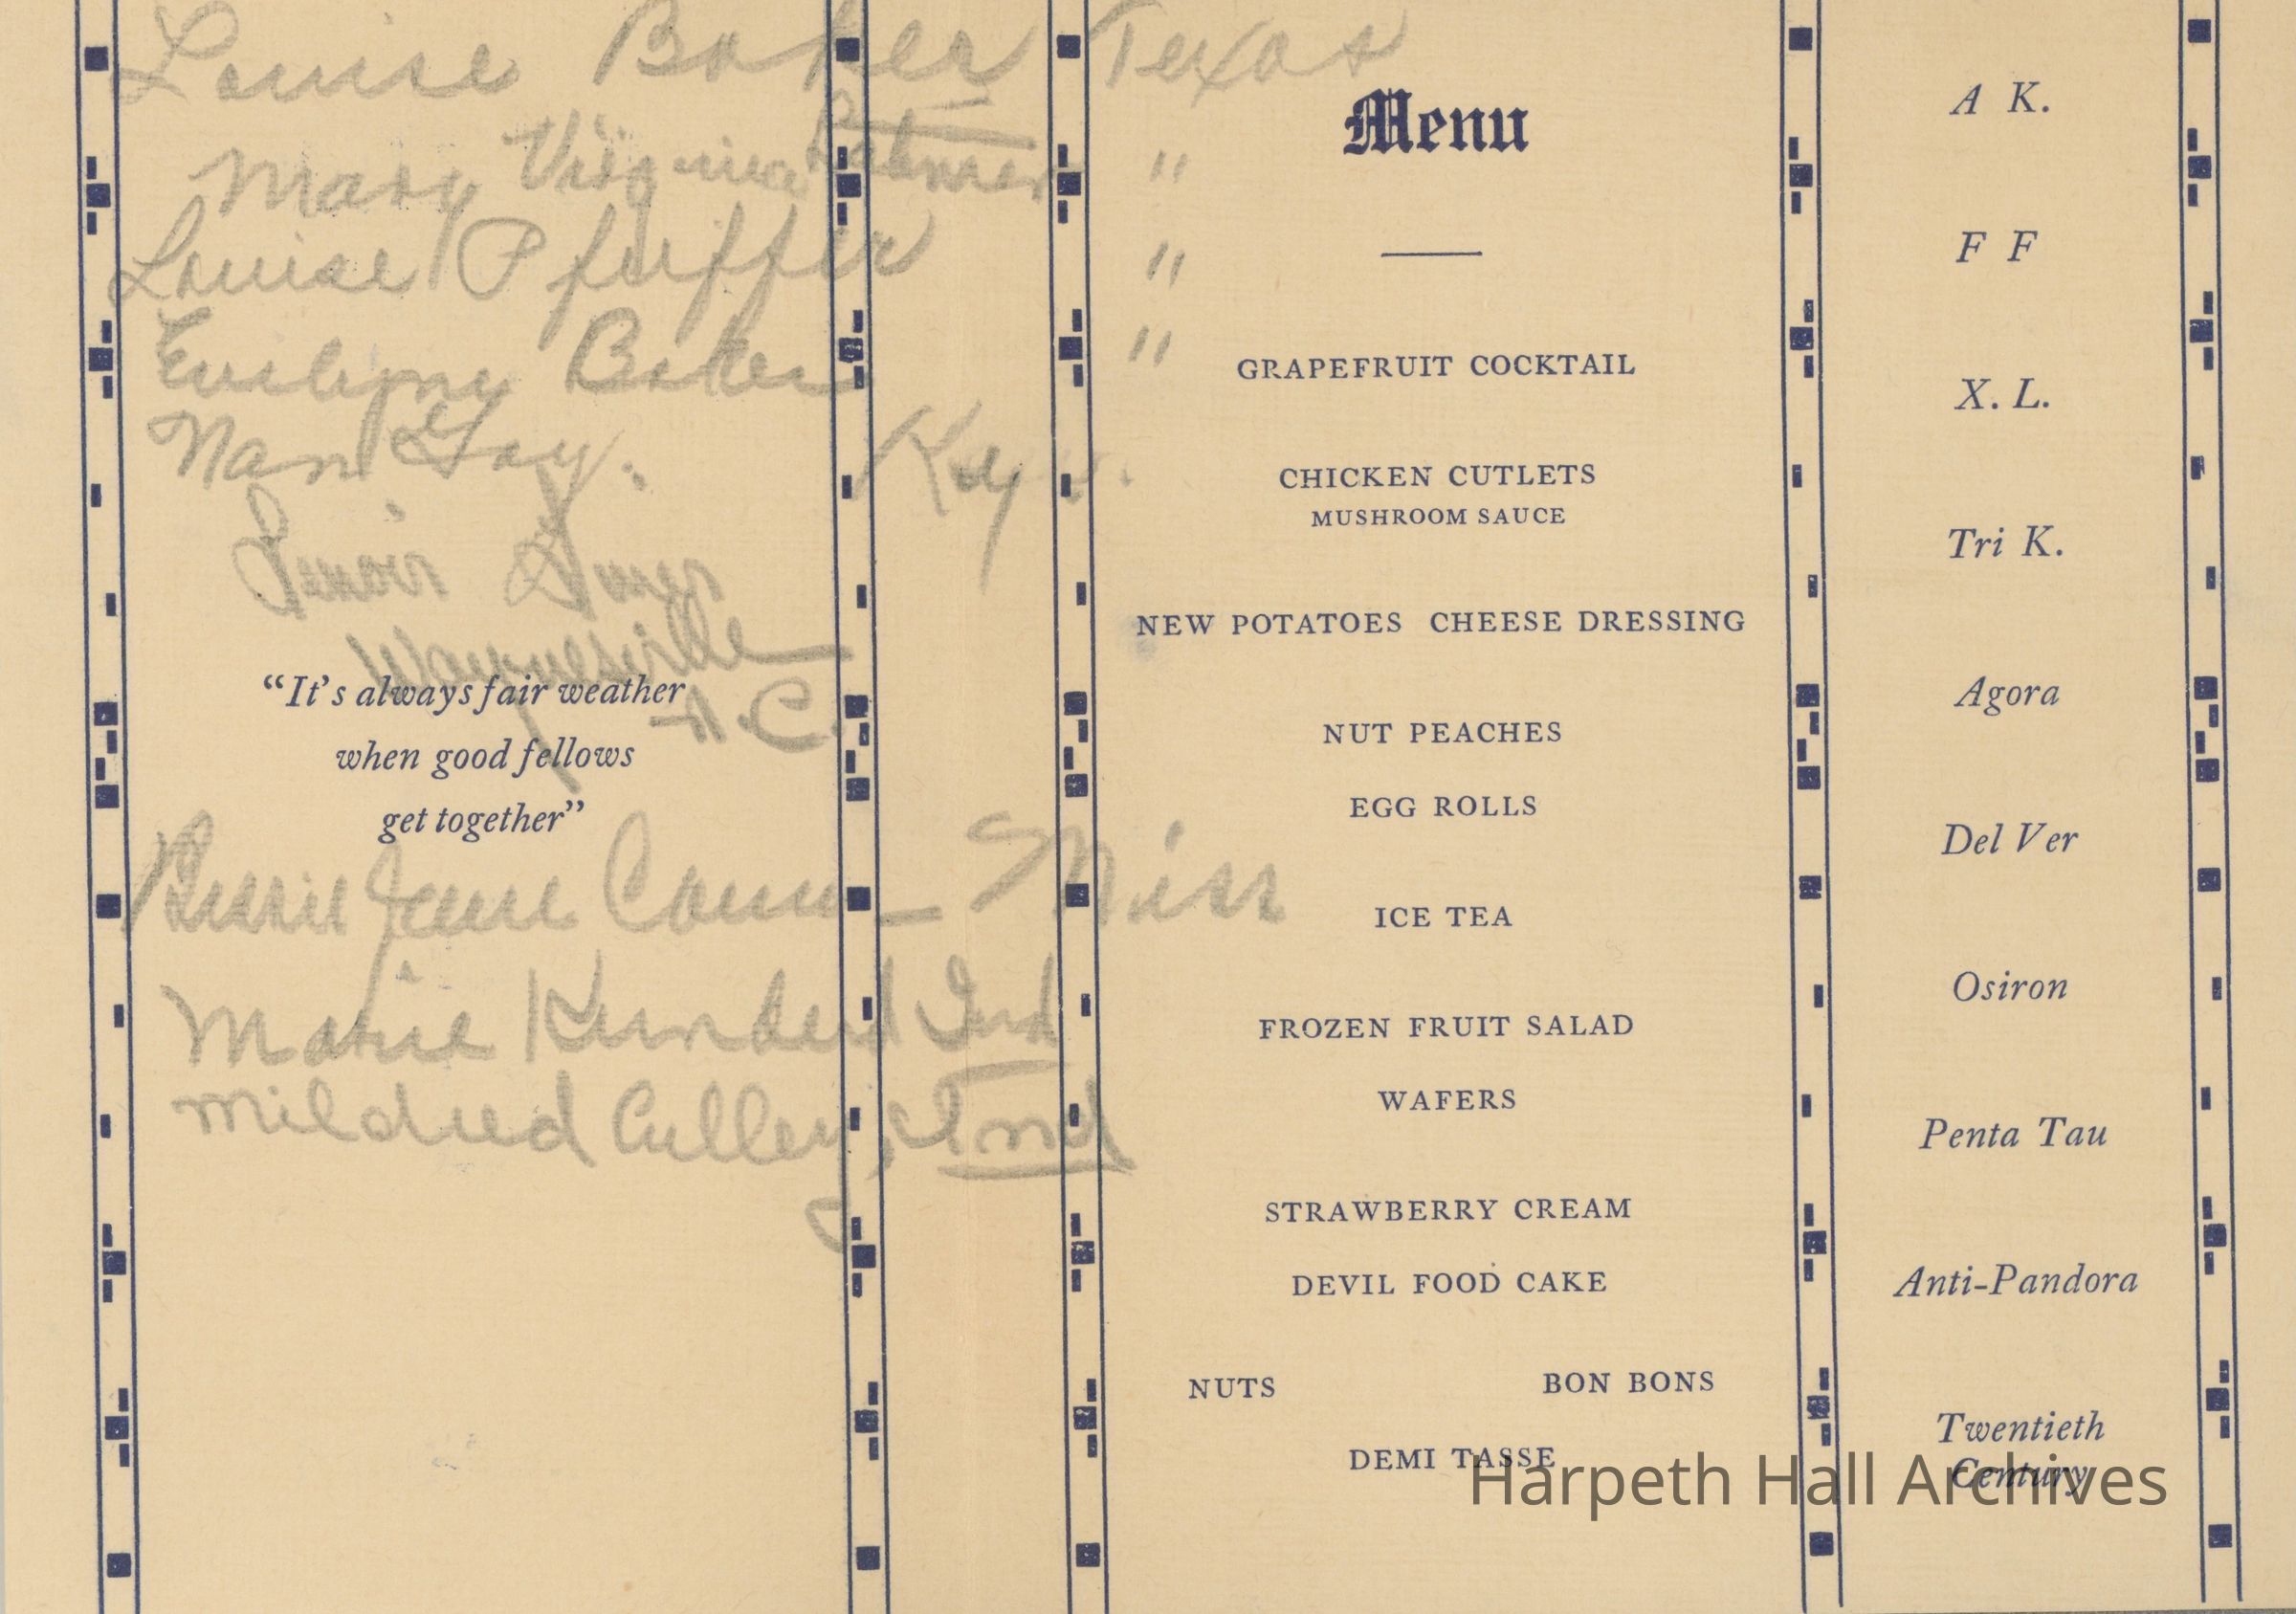 Louise Baker Texas
Mary Virginia "
Louise Pfuffer "
Baker "
Nan Gay. Ky.
Lenoir
Waynesville
N.C.
"It's always fair weather
when good fellows
get together"
Jane Miss
Marie Ind
Mildred Culley, Ind
Menu
GRAPEFRUIT COCKTAIL
CHICKEN CUTLETS
MUSHROOM SAUCE
NEW POTATOES CHEESE DRESSING
NUT PEACHES
EGG ROLLS
ICE TEA
FROZEN FRUIT SALAD
WAFERS
STRAWBERRY CREAM
DEVIL FOOD CAKE
NUTS BON BONS
DEMI TASSE
A K.
F F
X. L.
Tri K.
Agora
Del Ver
Osiron
Penta Tau
Anti-Pandora
Twentieth
Century
Harpeth Hall Archives